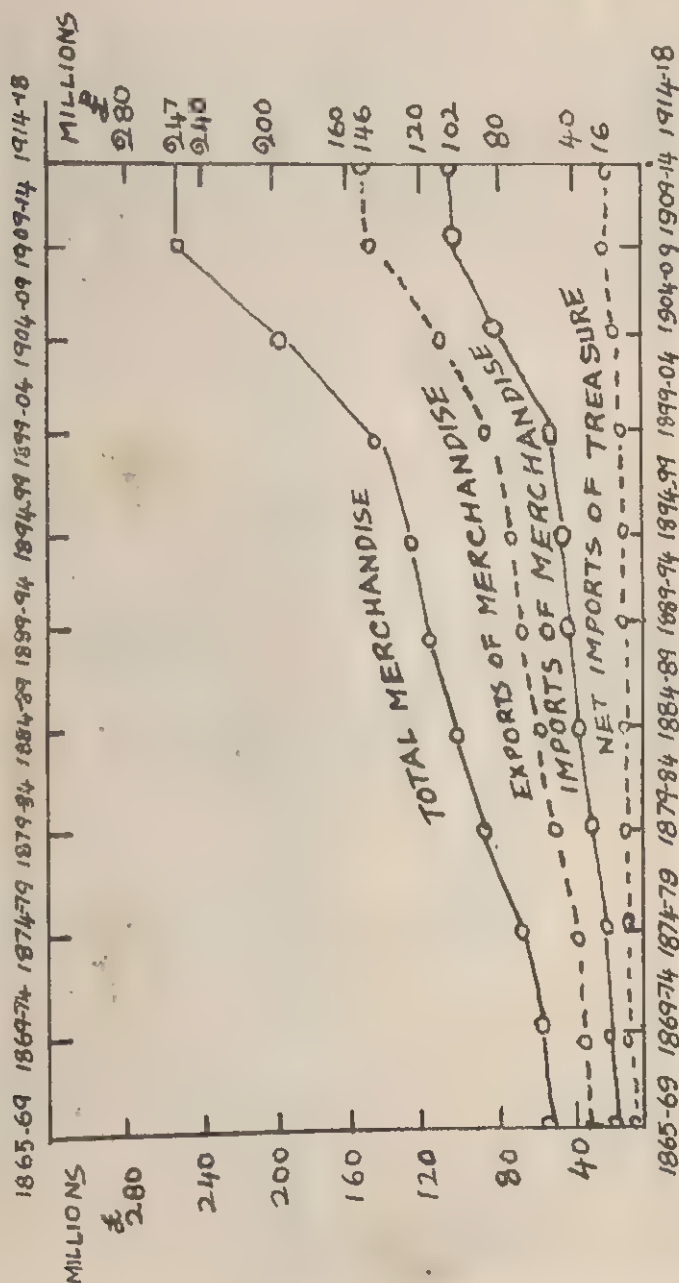 1865-69 1869-74 1874-79 1879-84 1884-89 1889-94 1894-99 1899-04 1904-09 1909-14 1914-18
MILLIONS
£
280
240
200
160
120
80
40
MILLIONS
£
280
247
240
200
160
146
120
102
80
40
16
TOTAL MERCHANDISE
EXPORTS OF MERCHANDISE
IMPORTS OF MERCHANDISE
NET IMPORTS OF TREASURE
1865-69 1869-74 1874-79 1879-84 1884-89 1889-94 1894-99 1899-04 1904-09 1909-14 1914-18